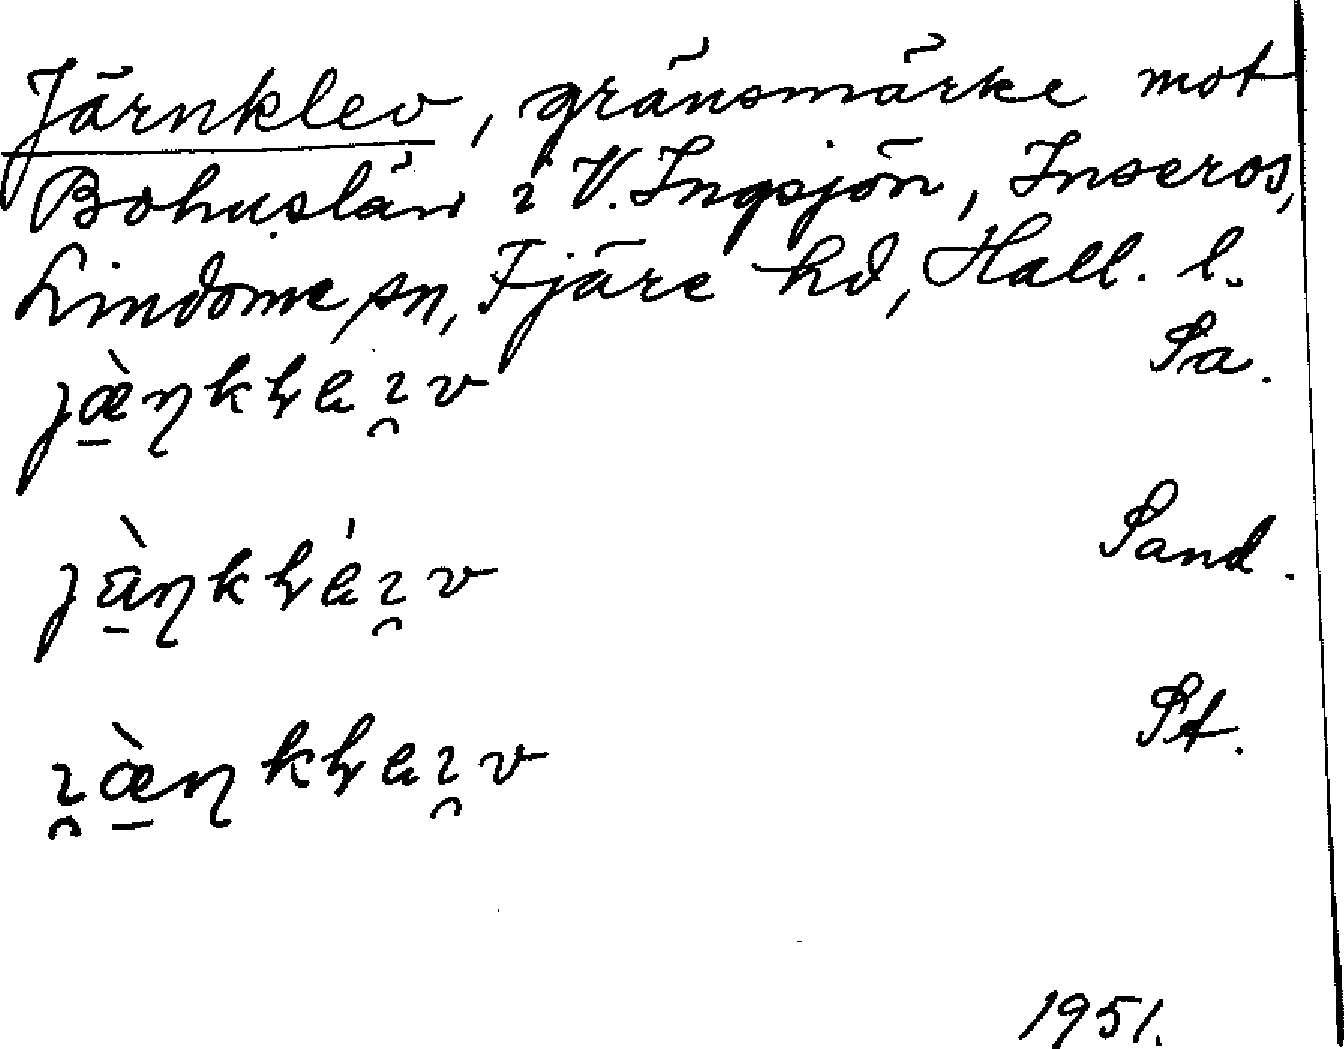 Järnklev, gränsmärke mot
Bohuslän i V. Ingsjön, Inseros,
Lindome sn, Fjäre hd, Hall. l.
Sa.
Sand.
St.
1951.